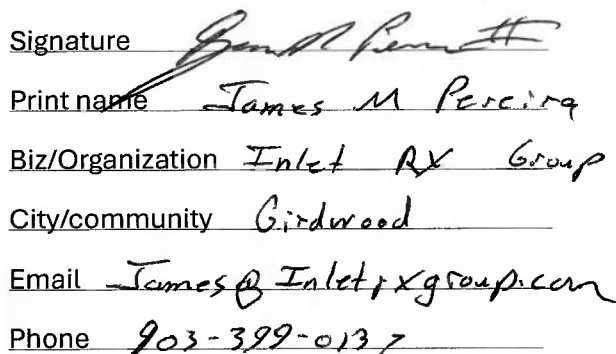 Signature
Print name James M Pereira
Biz/Organization Inlet RX Group
City/community Girdwood
Email James@Inletrxgroup.com
Phone 903-399-0137